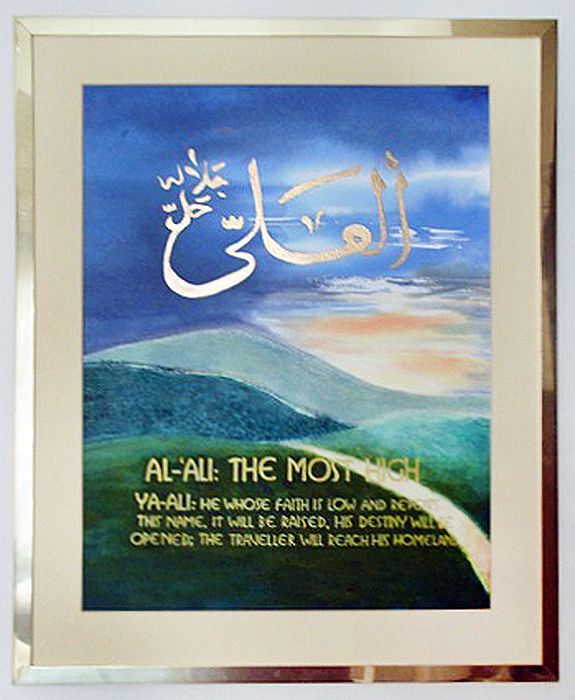 العليّ جلّ جلاله
AL-'ALI: THE MOST HIGH
YA-ALI: HE WHOSE FAITH IS LOW AND REPEATS
THIS NAME, IT WILL BE RAISED, HIS DESTINY WILL BE
OPENED; THE TRAVELLER WILL REACH HIS HOMELAND